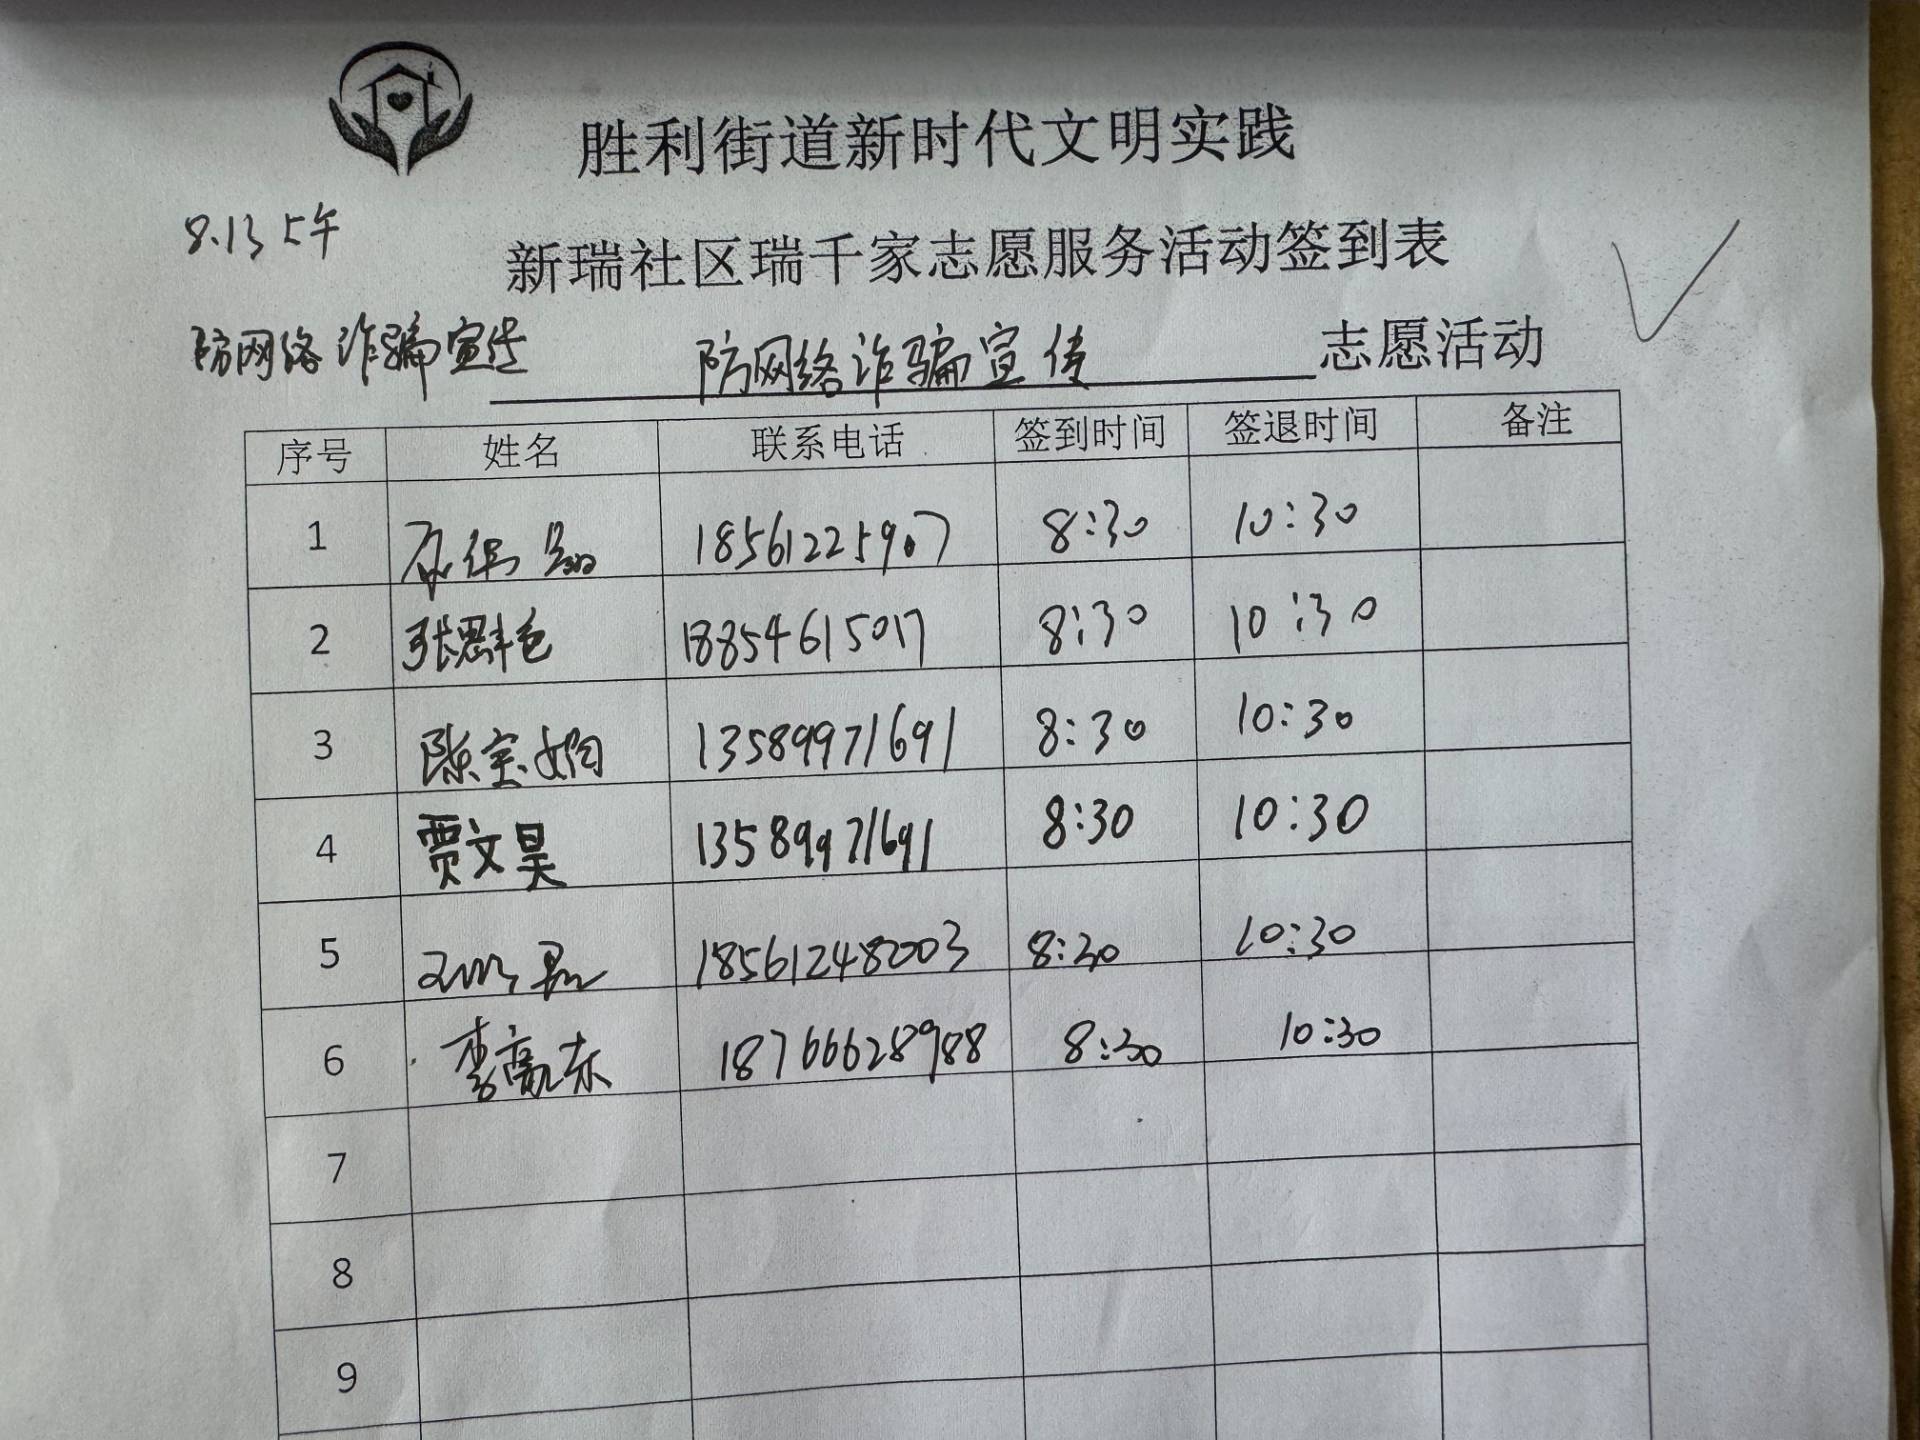 胜利街道新时代文明实践
8.13 上午
新瑞社区瑞千家志愿服务活动签到表
防网络诈骗宣传
防网络诈骗宣传 志愿活动
序号 姓名 联系电话 签到时间 签退时间 备注
1 18561225907 8:30 10:30
2 张 18854615017 8:30 10:30
3 陈宝娟 13589971691 8:30 10:30
4 贾文昊 13589971691 8:30 10:30
5 18561248003 8:30 10:30
6 李 18766628988 8:30 10:30
7
8
9